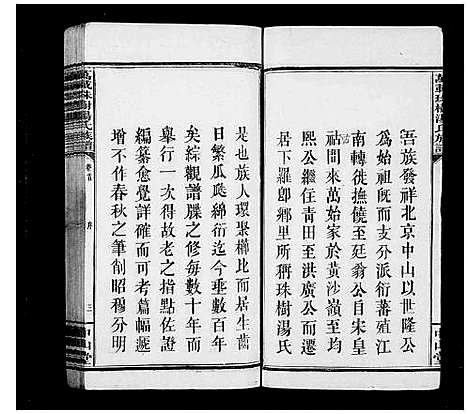 吾族發祥北京中山以世隆公
為始祖旣而支分派衍蕃殖江
南轉徙撫饒至廷翁公自宋皇
祐間來萬始家於黃沙嶺至均
熙公繼住青田至洪廣公而遷
居下羅卽鄉里所稱珠樹湯氏
是也族人環聚櫛比而居生齒
日繁瓜瓞綿衍迄今垂數百年
矣綜觀譜牒之修每數十年而
舉行一次得故老之指點佐證
編纂愈覺詳確而可考篇幅遞
增不作春秋之筆削昭穆分明
萬載珠樹湯氏族譜
卷首
序
三
中山堂